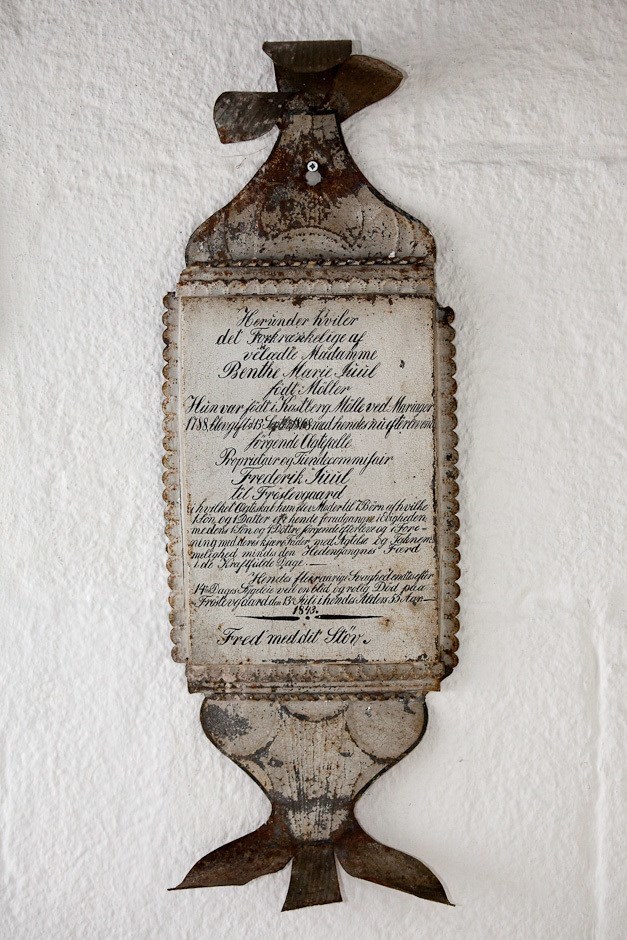 Herunder hviler
det Forkrænkelige af
velædle Madamme
Benthe Marie Juul
født Möller
Hun var født i Kastberg Mölle ved Mariager
1788, blev gift d 13 med hendes nu efterlevende
sørgende Ægtefælle
Proprietair og Tiendecommisair
Frederik Juul
til Frøslevgaard
i hvilket Ægteskab hun blev Moder til 7 Børn af hvilke
1 Søn og 1 Datter ere hende forudgangne i Evigheden,
medens 1 Søn og 4 Döttre sørgende efterleve og i Fore-
ning med deres kjære Fader med Agtelse og
melighed mindes den Hedengangnes Færd
i de Kraftfulde Dage.—
Hendes fleeraarige Svaghed endtes efter
14 Dages Sygeleie ved en blid og rolig Död paa
Frøslevgaard den 13de Juli i hendes Alders 55 Aar.—
1843.
Fred med dit Støv.